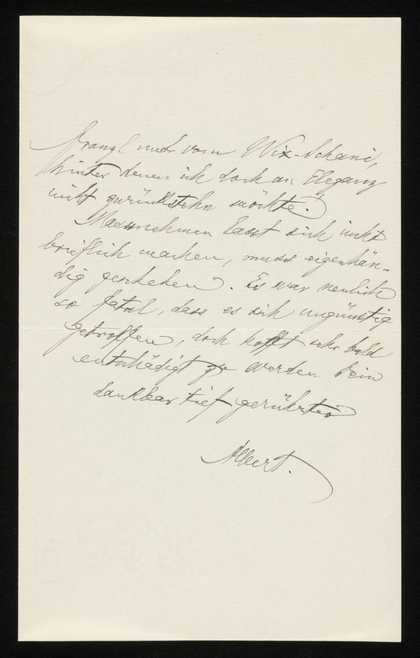 und vom Wix-Schani,
hinter denen ich doch an Eleganz
nicht zurückstehn möchte?
Massnehmen lässt sich nicht
brieflich machen, muss eigenhän-
dig geschehen. Es war neulich
so fatal, dass es sich ungünstig
getroffen, doch hofft sehr bald
entschädigt zu werden Dein
dankbar tief gerührter
Albert.